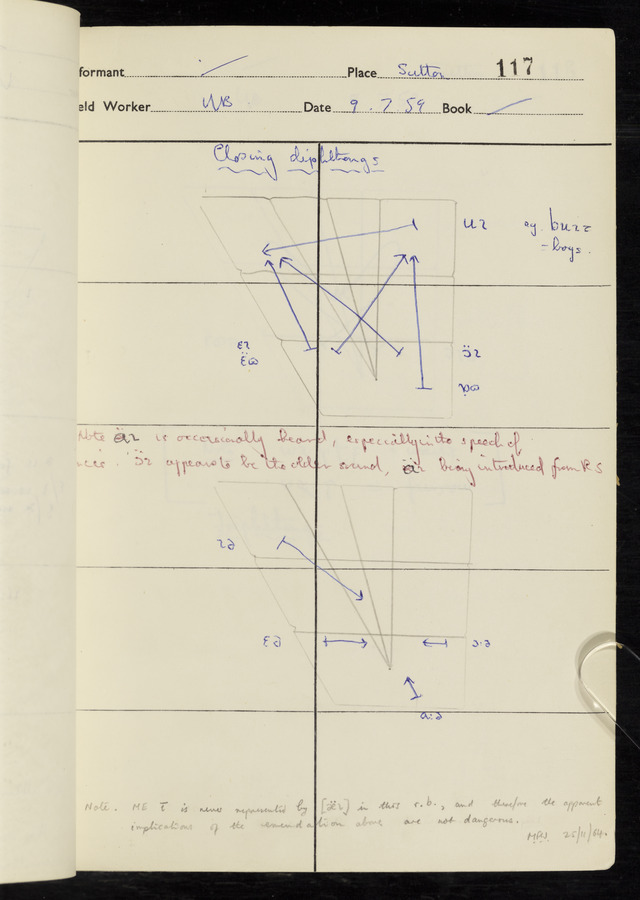 formant Place Sutton 117
eld Worker Date 9.7.59 Book
Closing diphthongs
uɪ eg. buɪz
- boys.
ɛɪ
ɛ̈ɷ
ɔ̈ɪ
ɒɷ
Note äɪ is occasionally heard, especially in the speech of
ɔ̈ɪ appears to be the older sound, äɪ being introduced from RS
ɪə
ɛə
ɔ:ə
a:ə
Note. ME ī is never represented by in this r.b., and therefore the apparent
implications of the emendation above are not dangerous.
25/11/64.